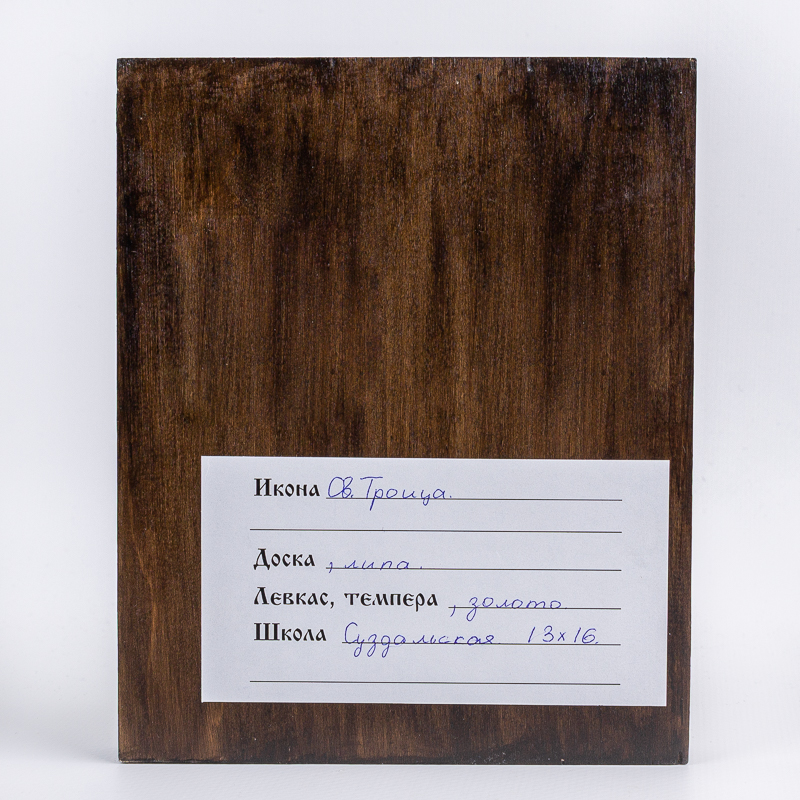 Икона Св. Троица.
Доска , липа.
Левкас, темпера , золото.
Школа Суздальская 13х16.